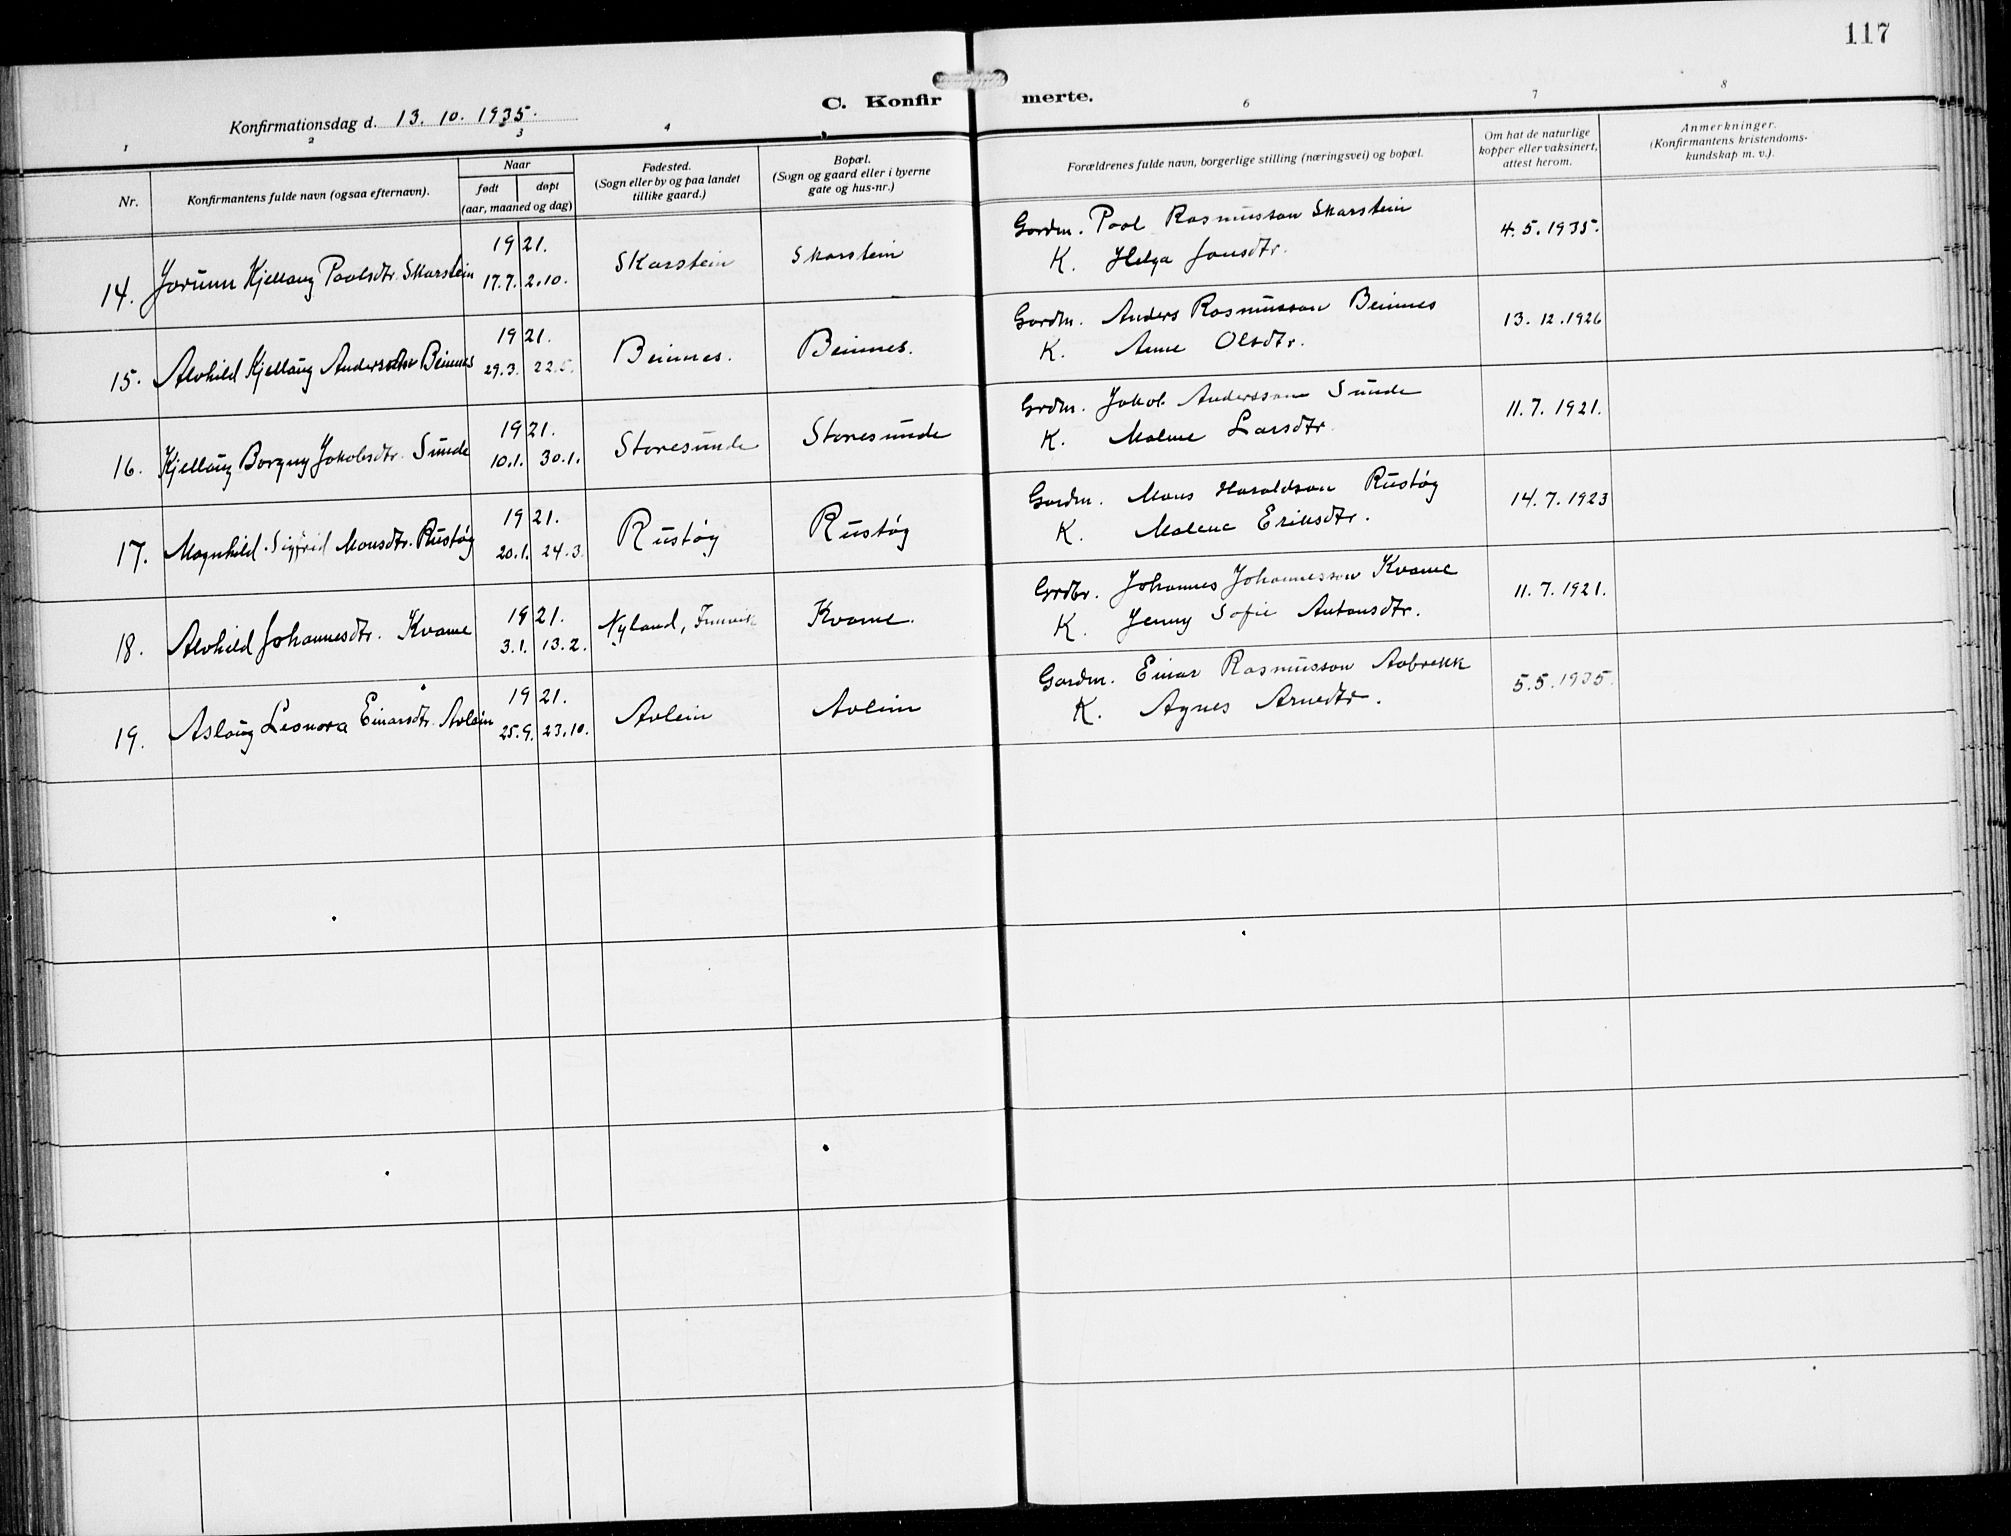 117
C. Konfirmerte.
Konfirmationsdag d. 13. 10. 1935.
1 2 3 4 6 7 8
Nr.
Konfirmantens fulde navn (ogsaa efternavn).
Naar
født døpt
(aar, maaned og dag)
Fødested.
(Sogn eller by og paa landet
tillike gaard.)
Bopæl.
(Sogn og gaard eller i byerne
gate og hus-nr.)
Forældrenes fulde navn, borgerlige stilling (næringsvei) og bopæl.
Om hat de naturlige
kopper eller vaksinert,
attest herom.
Anmerkninger.
(Konfirmantens kristendoms-
kundskap m. v.).
14. Jorunn Kjellaug Paalsdtr. Skarstein 1921. 17.7. 2.10. Skarstein Skarstein
Gardm. Paal Rasmusson Skarstein 4.5.1935.
K. Helga Jonsdtr.
15. Alvhild Kjellaug Andersdtr Beinnes 1921. 29.3. 22.5. Beinnes. Beinnes.
Gardm. Anders Rasmusson Beinnes 13.12.1926
K. Anne Olsdtr.
16. Kjellaug Borgny Jakobsdtr. Sunde 1921. 10.1. 30.1. Storesunde Storesunde
Grdm. Jakob Andersson Sunde 11.7.1921.
K. Malene Larsdtr.
17. Magnhild Sigfrid Monsdtr. Rustøy 1921. 20.1. 24.3. Rustøy Rustøy
Gardm. Mons Haraldson Rustøy 14.7.1923
K. Malene Eriksdtr.
18. Alvhild Johannesdtr. Kvame 1921. 3.1. 13.2. Nyland, Innvik Kvame.
Grdbr. Johannes Johannesson Kvame 11.7.1921.
K. Jenny Sofie Antonsdtr.
19. Aslaug Leonora Einarsdtr. Avlein 1921. 25.9. 23.10. Avlein Avlein
Gardm. Einar Rasmusson Aabrekk 5.5.1935.
K. Agnes Arnedtr.